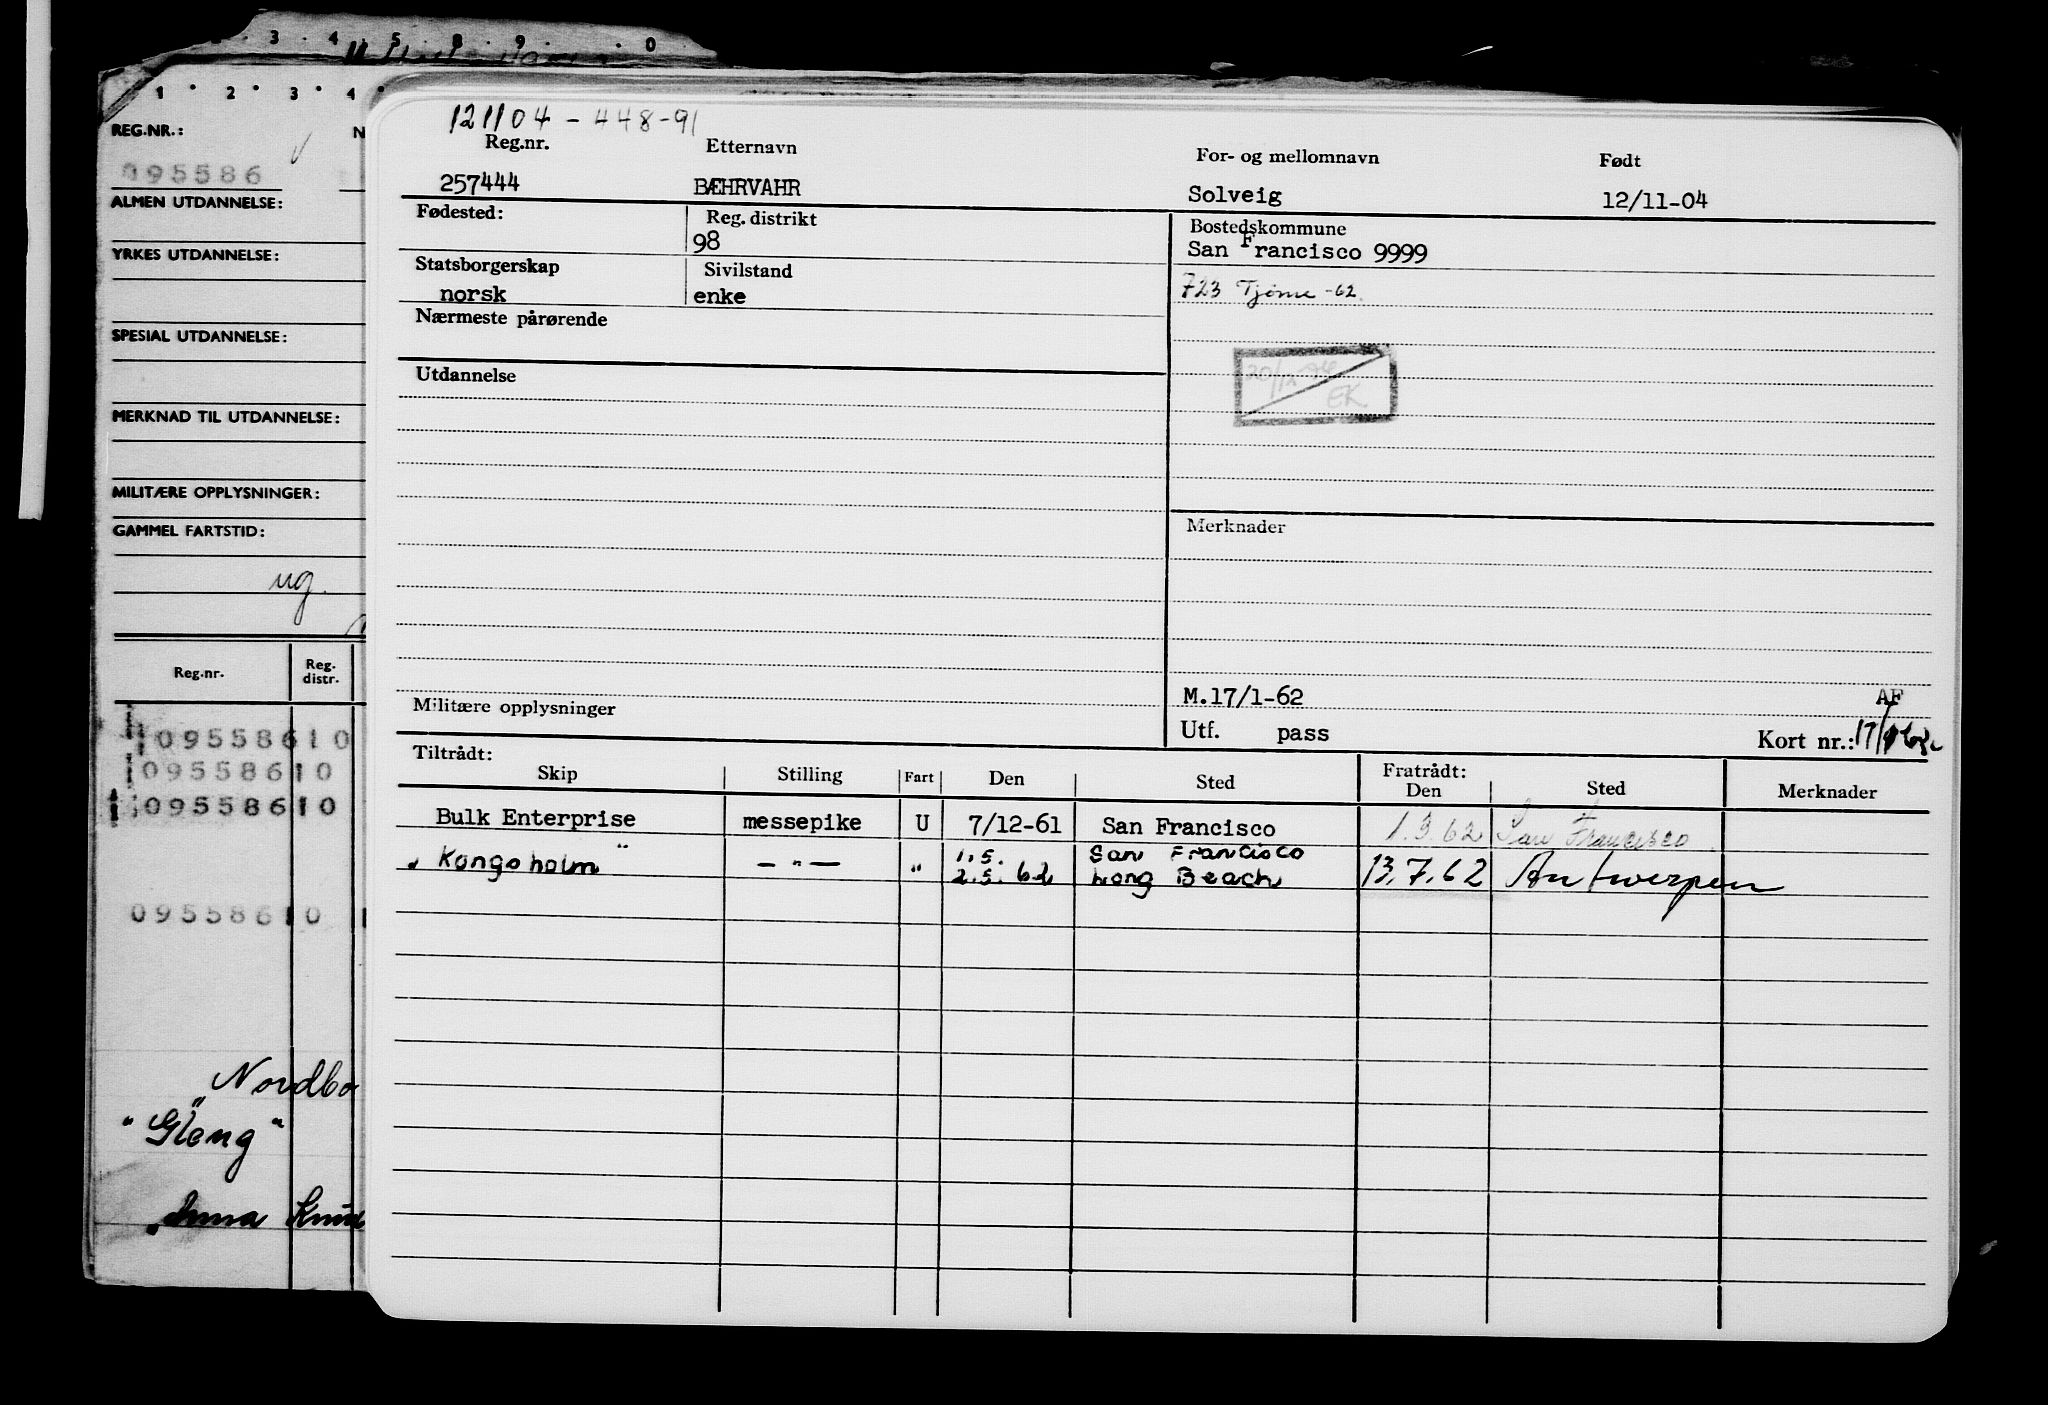 3 · 4 · 5 · 8 · 9 · · 0
1 · 2 · 3 · 4 ·
REG.NR.: N
095586
ALMEN UTDANNELSE:
YRKES UTDANNELSE:
SPESIAL UTDANNELSE:
MERKNAD TIL UTDANNELSE:
MILITÆRE OPPLYSNINGER:
GAMMEL FARTSTID:
ug.
Reg.nr. Reg. distr.
095586 10
095586 10
095586 10
095586 10
Nordbo
"Gleng"
"Anna Knud
121104 - 448-91
Reg.nr. Etternavn For- og mellomnavn Født
257444 BÆHRVAHR Solveig 12/11-04
Fødested: Reg. distrikt Bostedskommune
98 San Francisco 9999
Statsborgerskap Sivilstand
norsk enke 723 Tjöme -62.
Nærmeste pårørende
20/12 74
EK
Utdannelse
Merknader
M.17/1-62 AF
Militære opplysninger Utf. pass Kort nr.:
Tiltrådt: Fratrådt:
Skip Stilling Fart Den Sted Den Sted Merknader
Bulk Enterprise messepike U 7/12-61 San Francisco 1.3.62 San Francisco
"Kongsholm" — " — " 1.5. San Francisco
2.5.62 Long Beach 13.7.62 Antwerpen